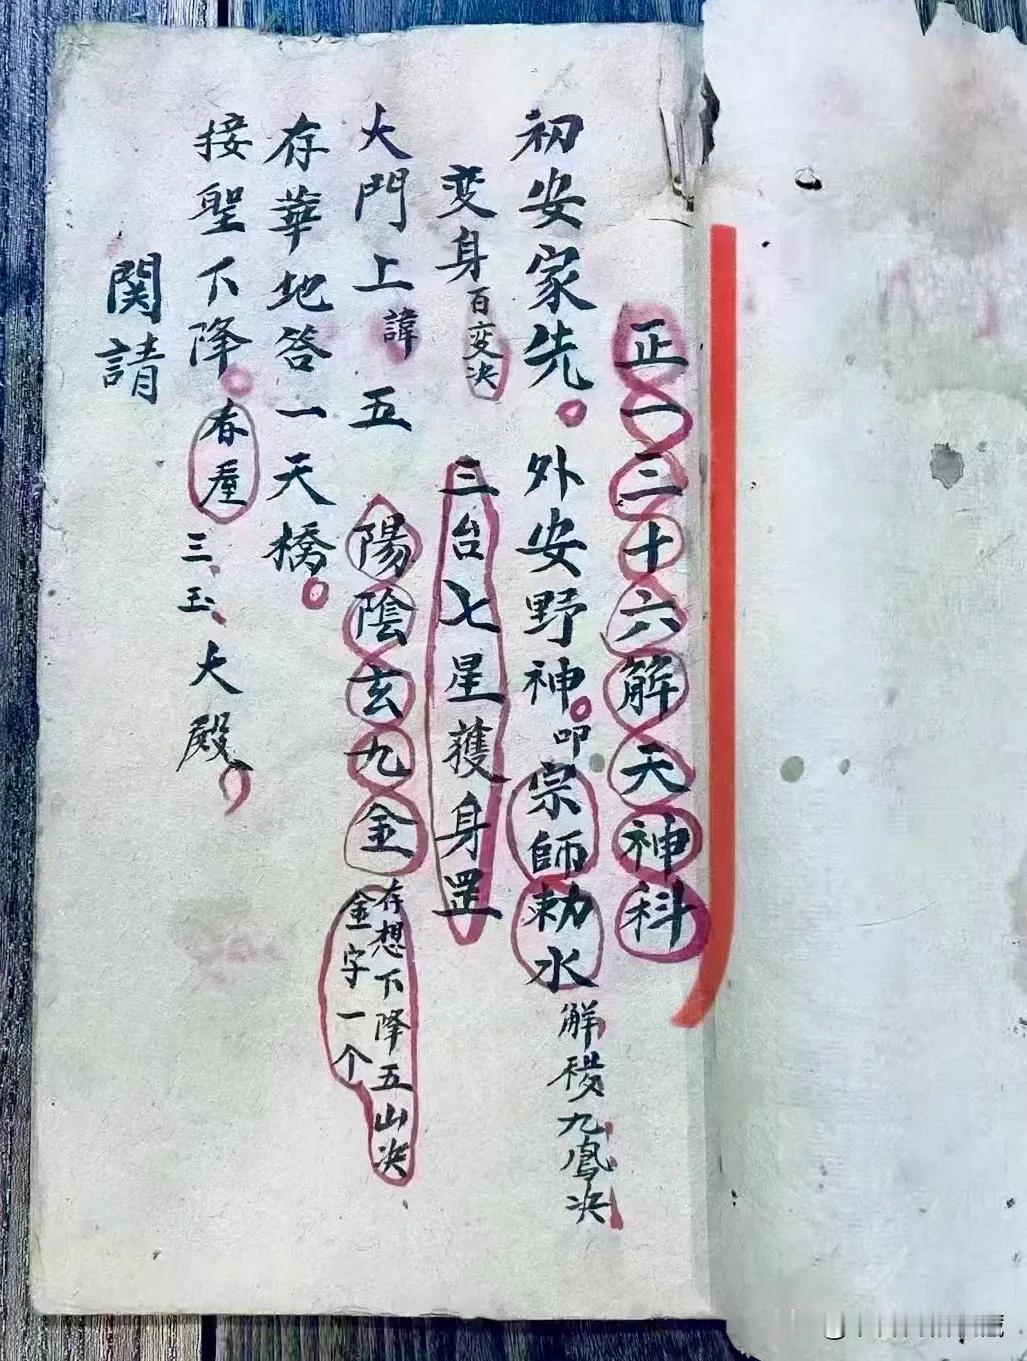 正一三十六解天神科
初安家先。外安野神。叩宗師勅水解穢九鳳决
変身百変决 三台七星護身罡
大門上諱五 陽陰玄九金存想下降五山决金字一个
存華地答一天橋。
接聖下降。春 三玉大殿
関請